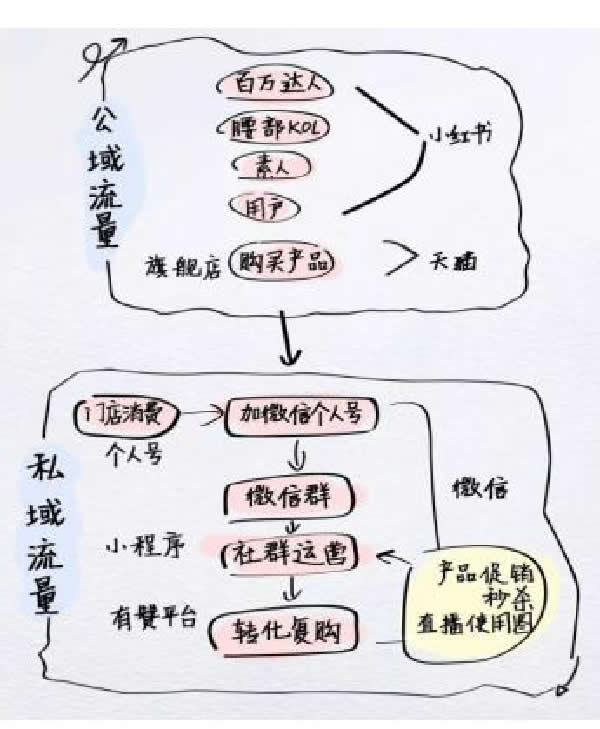 公域流量
百万达人
腰部KOL
素人
用户
小红书
旗舰店
购买产品
天猫
私域流量
门店消费
加微信个人号
个人号
微信群
微信
小程序
社群运营
产品促销
秒杀
直播使用圈
有赞平台
转化复购